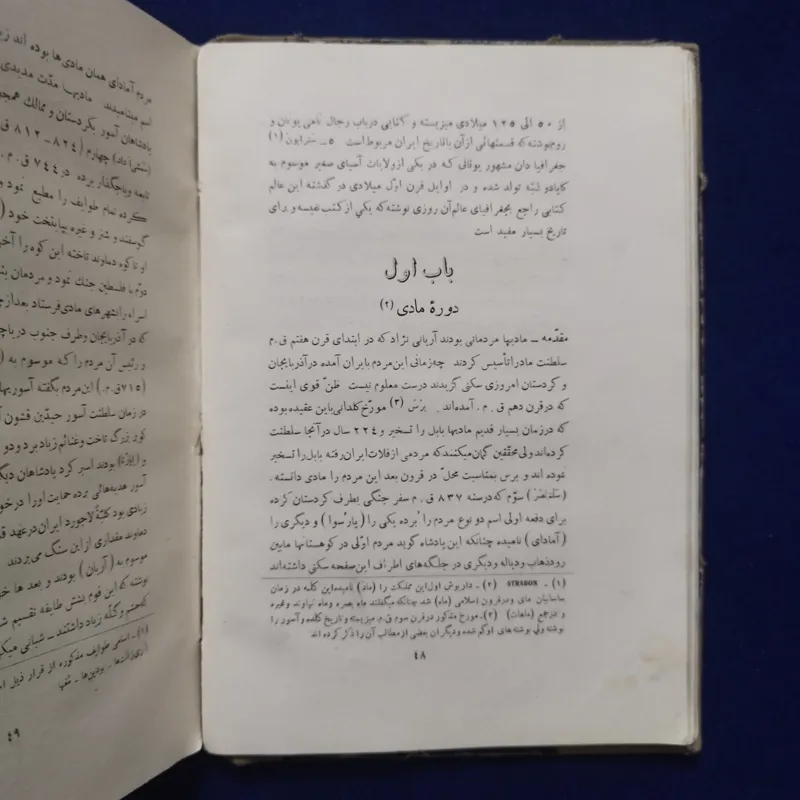 از ۵۰ الی ۱۲۵ میلادی میزیسته و کتابی درباب رجال نامی یونان و
روم نوشته که قسمتهائی از آن با تاریخ ایران مربوط است ۵ـ سترابون (۱)
جغرافیا دان مشهور یونانی که در یکی از ولایات آسیای صغیر موسوم به
کاپادوکیه تولد شده و در اوایل قرن اوّل میلادی در گذشته این عالم
کتابی راجع بجغرافیای عالم آن روزی نوشته که یکی از کتب نفیسه و برای
تاریخ بسیار مفید است
باب اول
دورهٔ مادی (۲)
مقدّمه ـ مادیها مردمانی بودند آریانی نژاد که در ابتدای قرن هفتم ق.م
سلطنت ماد را تأسیس کردند چه زمانی این مردم بایران آمده در آذربایجان
و کردستان امروزی سکنی گزیدند درست معلوم نیست ظنّ قوی اینست
که در قرن دهم ق . م . آمده‌اند . برُس (۳) مورّخ کلدانی باین عقیده بوده
که در زمان بسیار قدیم مادیها بابل را تسخیر و ۲۲۴ سال در آنجا سلطنت
کرده‌اند ولی محقّقین گمان میکنند که مردمی از فلات ایران رفته بابل را تسخیر
نموده اند و برس بمناسبت محلّ در قرون بعد این مردم را مادی دانسته .
(سلمنصر) سوّم که در سنه ۸۳۷ ق . م سفر جنگی بطرف کردستان کرده
برای دفعه اولی اسم دو نوع مردم را بُرده یکی را (پارسوا) و دیگری را
(آمادای) نامیده چنانکه این پادشاه گوید مردم اوّلی در کوهستانها مابین
رود ذهاب و دیاله و دیگری در جلگه‌های اطراف این صفحه سکنی داشته‌اند
(۱) ـ STRABON (۲) ـ داریوش اول این مملکت را (ماد) نامیده این کلمه در زمان
ساسانیان مای و در قرون اسلامی (ماه) شد چنانکه میگفتند ماه بصره و ماه نهاوند و غیره
و در جمع (ماهات) (۳)ـ مورخ مذکور در قرن سوم ق.م میزیسته و تاریخ کلده و آسور را
نوشته ولی نوشته های او گم شده و دیگران بعضی از مطالب آن را ذکر کرده اند
۴۸
مردم آمادای همان مادی‌ها بوده اند
اسم مینامیدند مادیها مدّت مدیدی
پادشاهان آسور بکردستان و ممالک
چهارم (۸۲۴ـ۸۱۲
تابعه و باجگذار برده در ۷۴۴ ق . م .
کرده تمام طوایف را مطیع نمود و
گوسفند و شتر و غیره بپایتخت خود
او تا کوه دماوند تاخته این کوه را
دوّم با فلسطین جنک نمود و مردمان
اسراء را بشهرهای مادی فرستاد بعد از
که در آذربایجان و طرف جنوب
و رئیس آن مردم را که موسوم به
(۷۱۵ ق.م.) این مردم بگفته آسوریها
در زمان سلطنت آسور حیدّین قشون
کوی بزرک تاخت و غنائم زیاد برد و دو
بودند اسیر کرد پادشاهان دیگر
آسور هدیه‌هائی برده حمایت او را در
زیادی بود کلیّةً لاجورد ایران در عهد
دماوند مقداری از این سنگ می‌بردند
موسوم به (آریان) بودند و بعد ها
نوشته که این قوم بشش طایفه تقسیم
که حشم و گلّه زیاد داشتند ـ شبانی
(۱) ـ اسامی طوایف مذکوره از قرار ذیل
۴۹